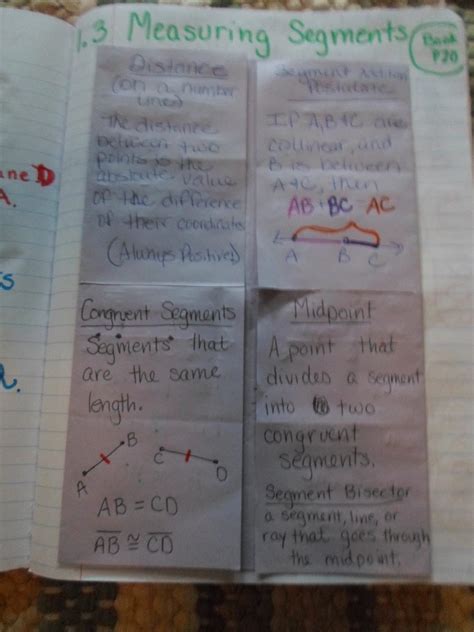 1.3 Measuring Segments
Book
P20
Distance
(on a number
line)
The distance
between two
points is the
absolute value
of the difference
of their coordinates
(Always Positive)
Segment Addition
Postulate
If A, B & C are
collinear, and
B is between
A & C, then
AB + BC = AC
A B C
Congruent Segments
Segments that
are the same
length.
A B C D
AB = CD
A̅B̅ ≅ C̅D̅
Midpoint
A point that
divides a segment
into two
congruent
segments.
Segment Bisector
a segment, line, or
ray that goes through
the midpoint.
ne D
A.
s